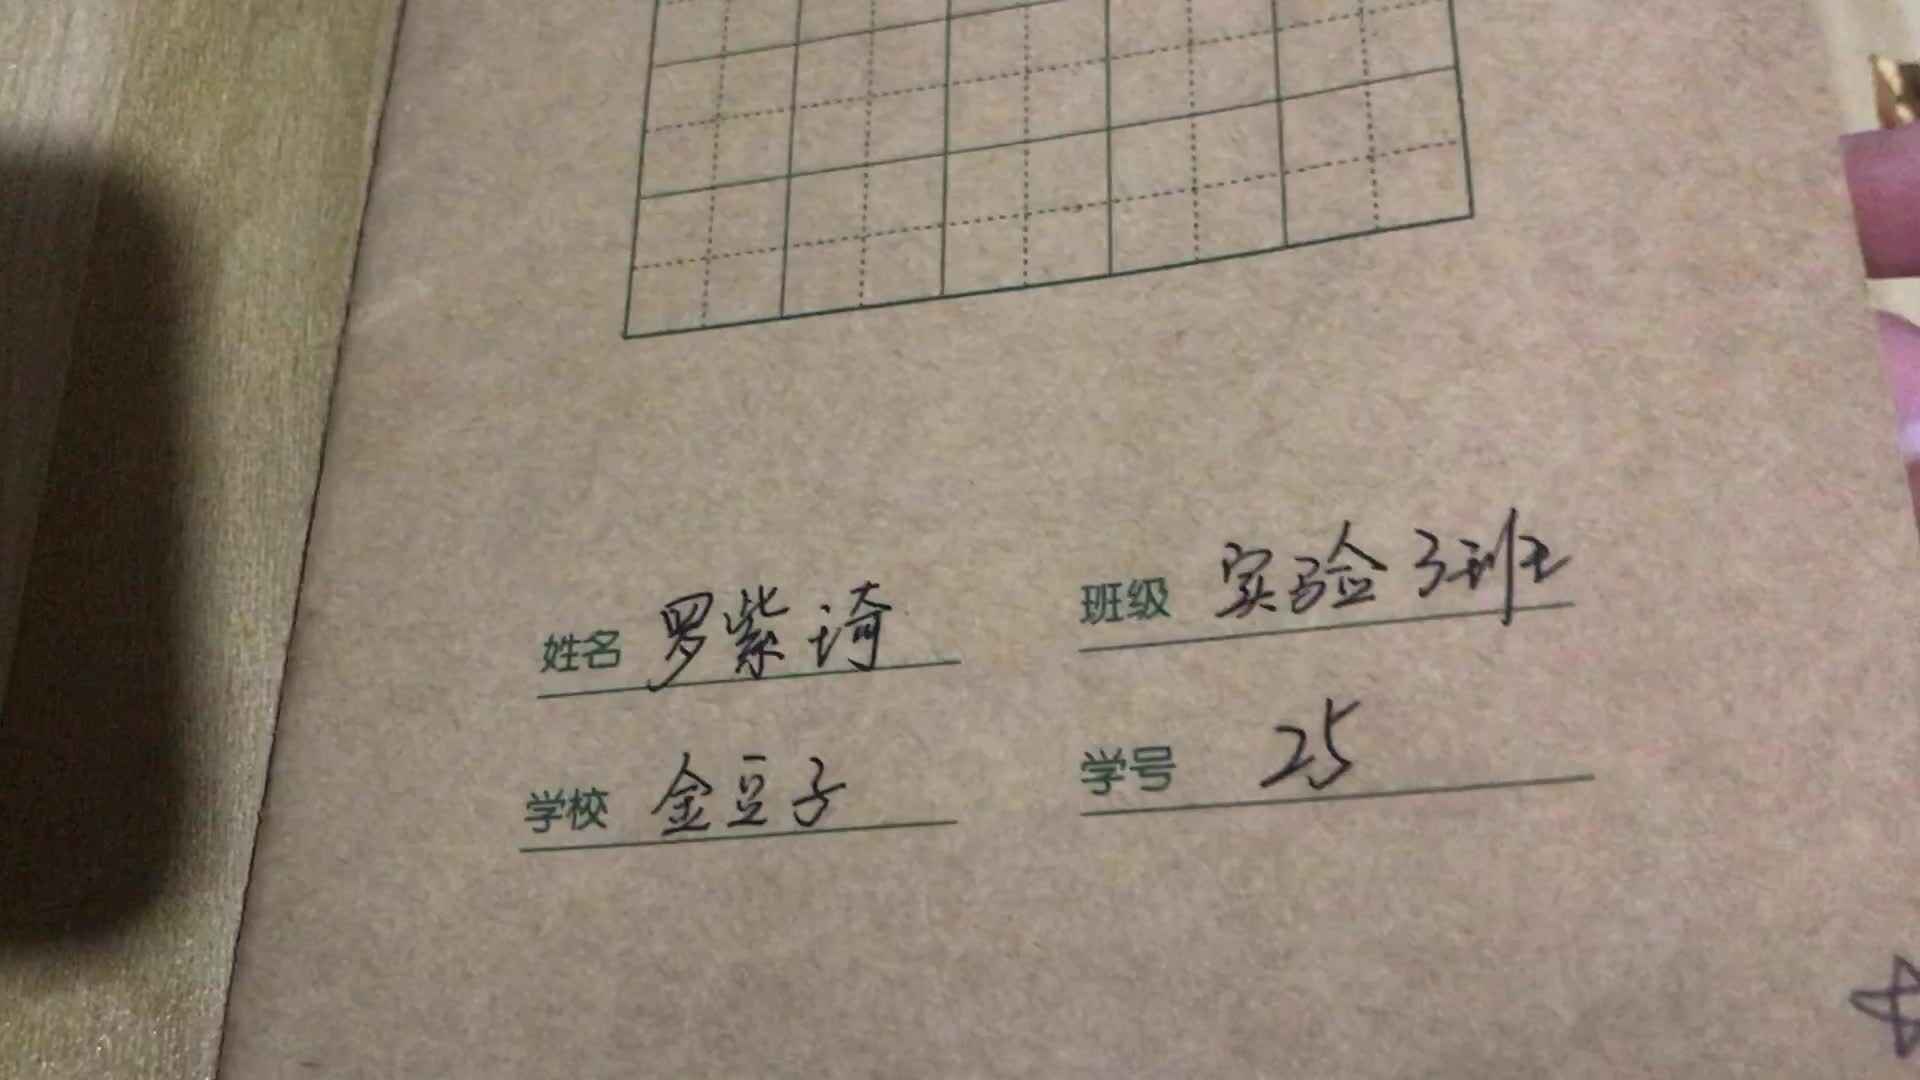 姓名 罗紫琦 班级 实验3班
学校 金豆子 学号 25